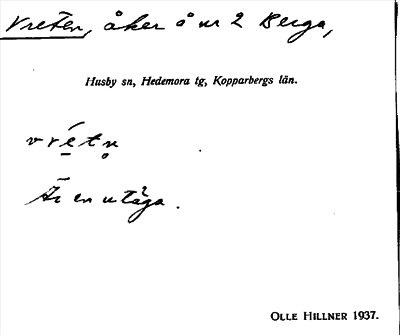 Vreten, åker å nr 2 Berga,
Husby sn, Hedemora tg, Kopparbergs län.
vrétn̥
Är en utäga.
OLLE HILLNER 1937.